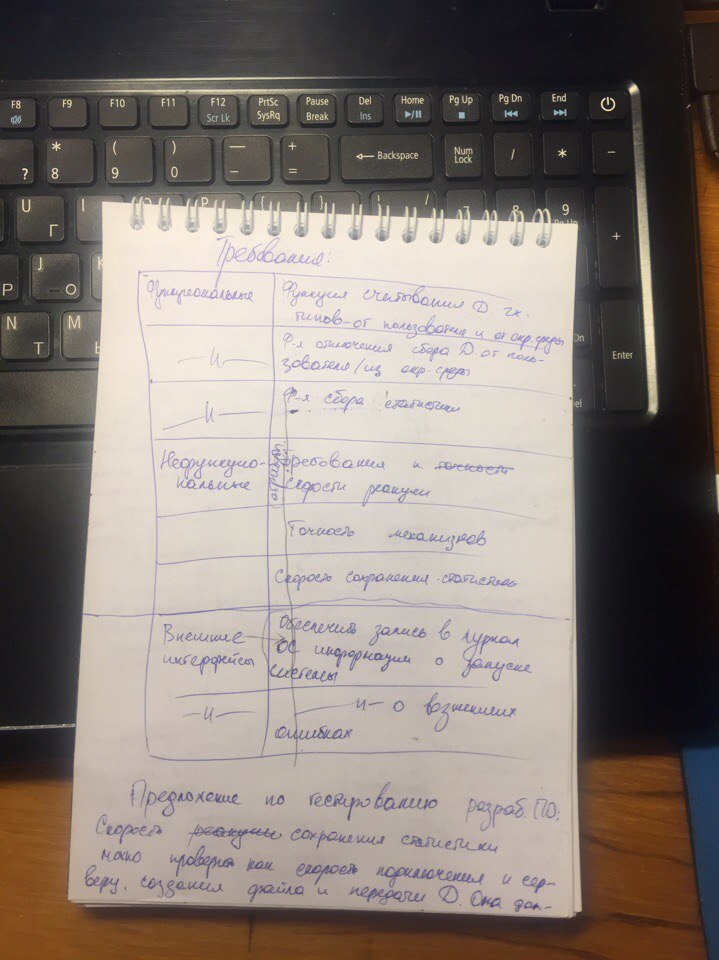 F8 F9 F10 F11 F12 PrtSc Pause Del Home Pg Up Pg Dn End
Scr Lk SysRq Break Ins
? * ( ) — + ← Backspace Num / * −
8 9 0 - = Lock
U Г 7 8 9 +
J О Р
N Т М Ь Enter
Требования:
Функциональные Функция считывания Д.
типов от пользователя и от окр. среды
—и— Ф-я отключения сбора Д. от поль-
зователя/из окр. среды
—и— Ф-я сбора статистики
Нефункцио- Требования к точности
нальные скорости реакции
Точность механизмов
Скорость сохранения статистики
Внешние Обеспечить запись в журнал
интерфейсы ОС информации о запуске
системы
—и— —и— о возникших
ошибках
Предложение по тестированию разраб. ПО:
Скорость реакции сохранения статистики
можно проверить как скорость подключения к сер-
веру, создания файла и передачи Д. Она дол-